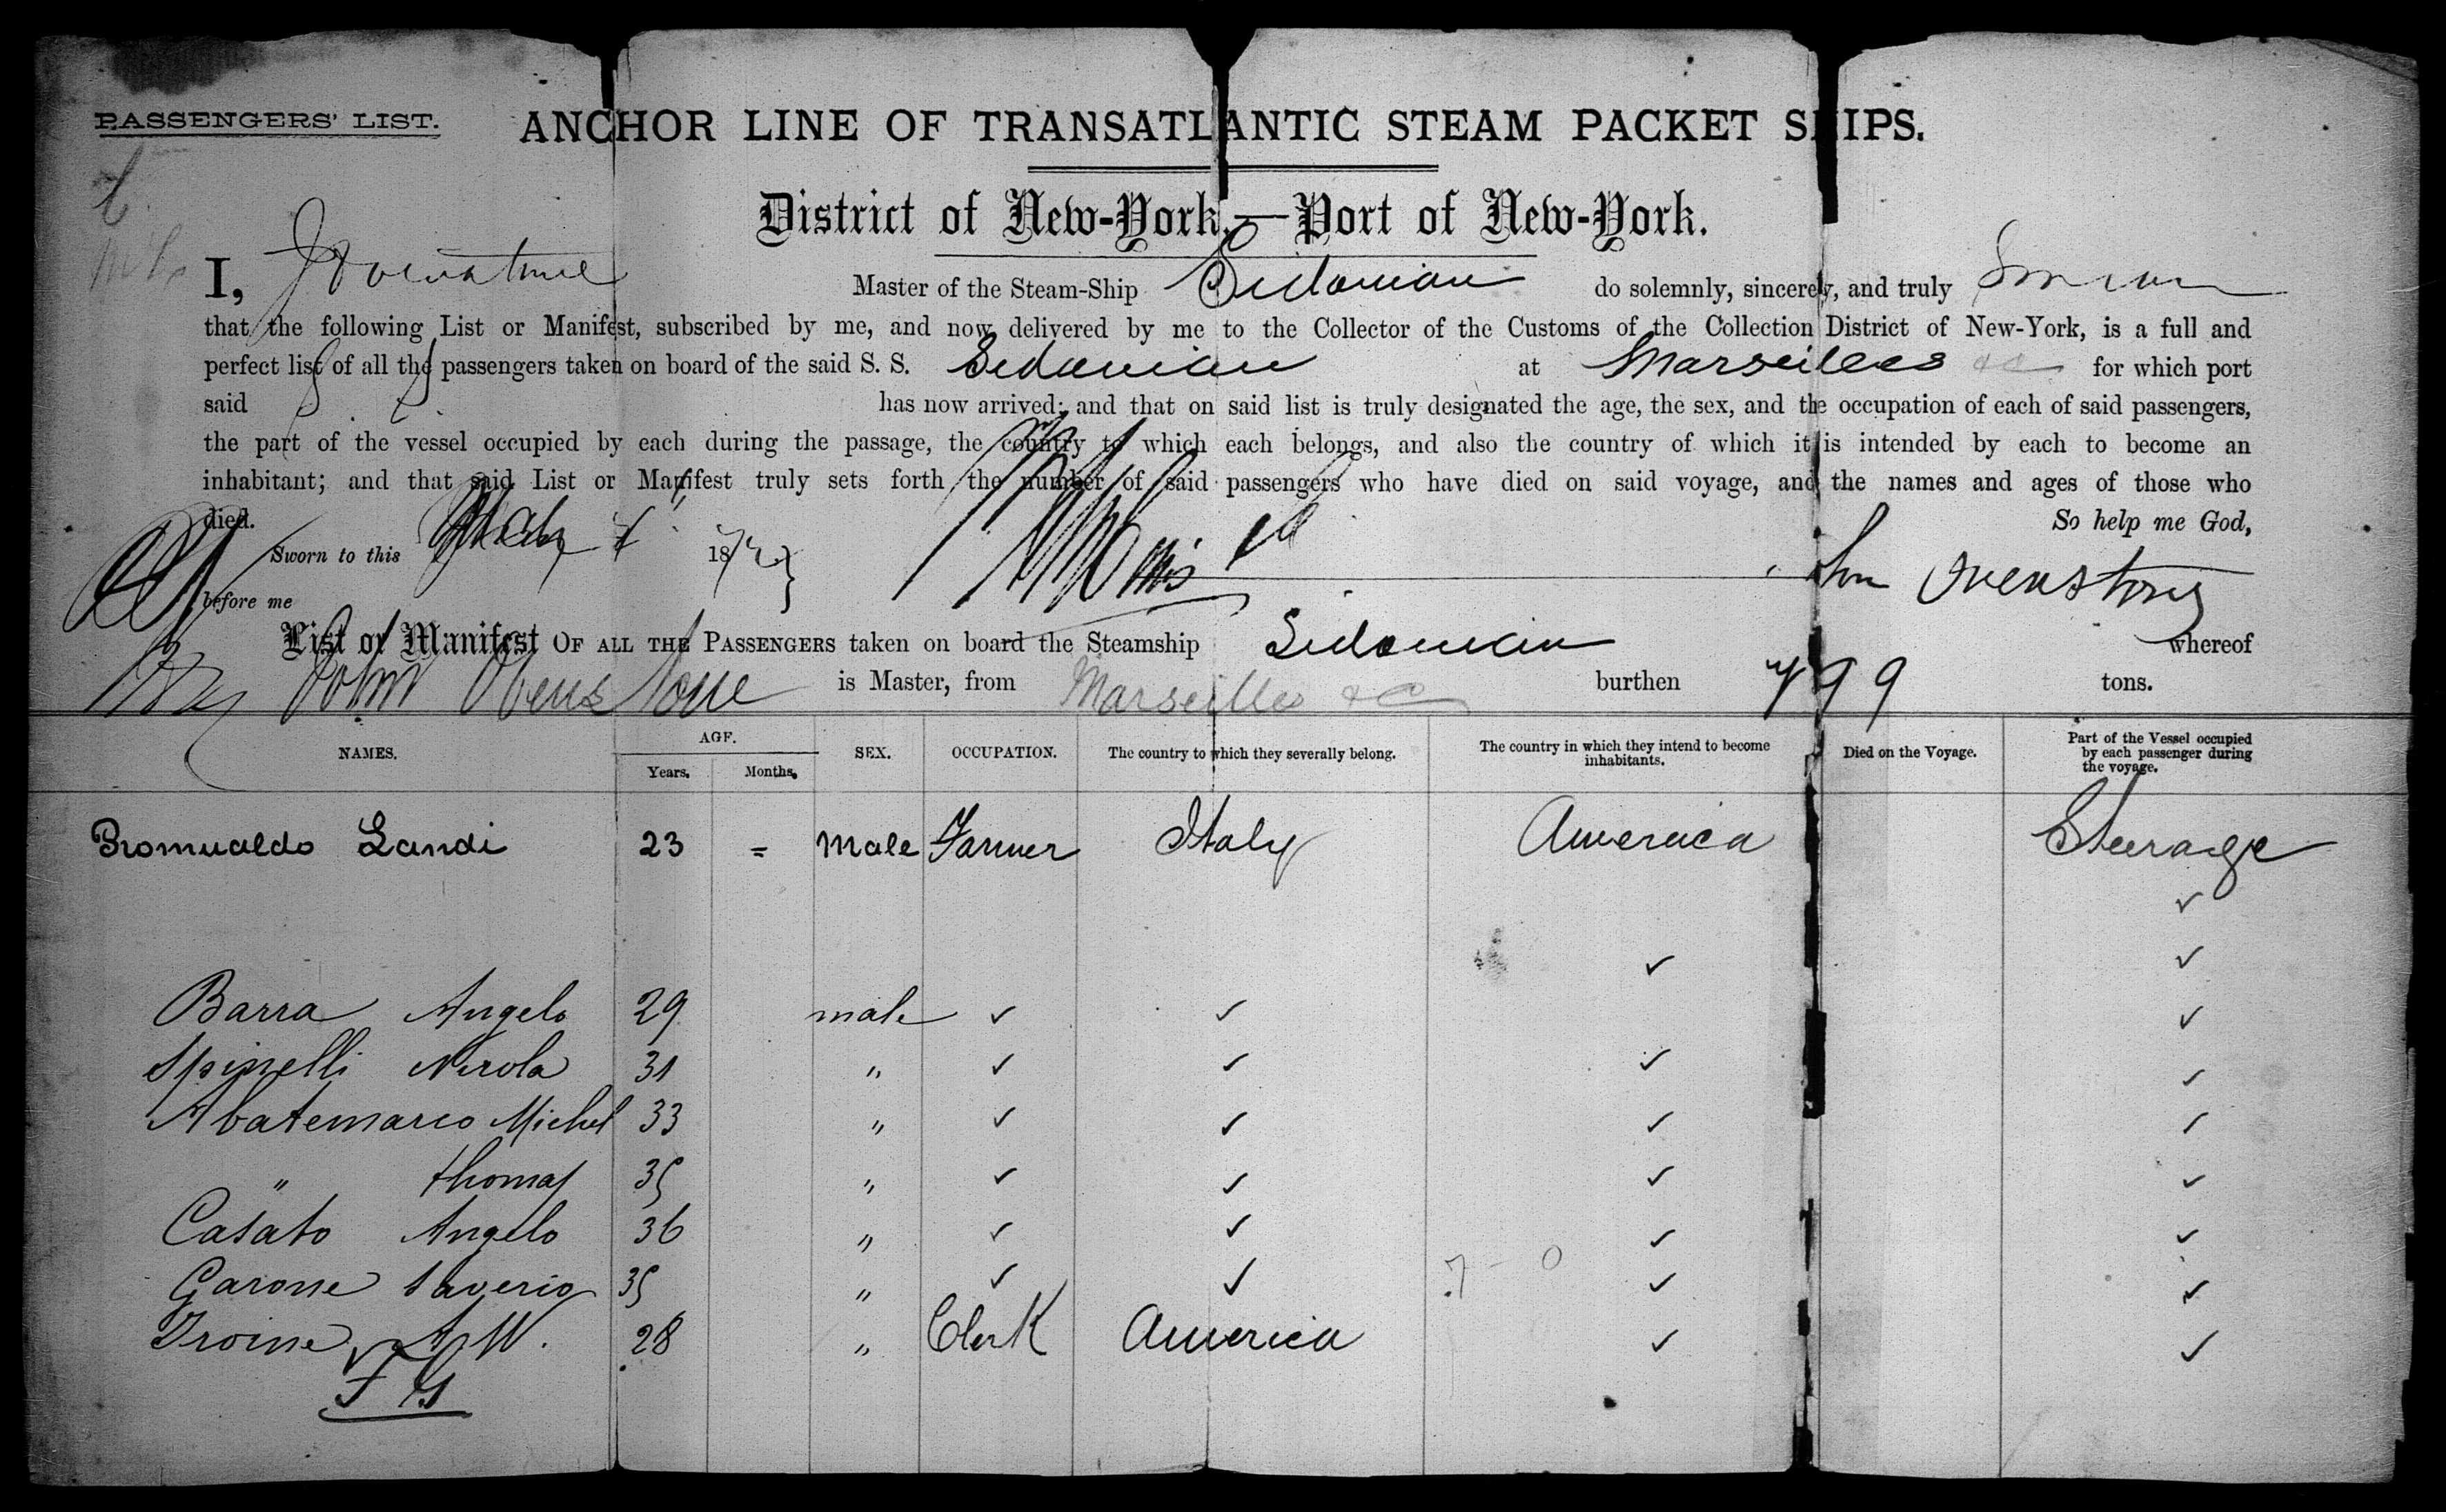 PASSENGERS' LIST.
ANCHOR LINE OF TRANSATLANTIC STEAM PACKET SHIPS.
District of New-York,—Port of New-York.
I, Master of the Steam-Ship Sidonian do solemnly, sincerely, and truly
that the following List or Manifest, subscribed by me, and now delivered by me to the Collector of the Customs of the Collection District of New-York, is a full and
perfect list of all the passengers taken on board of the said S. S. Sidonian at Marseilles &c for which port
said has now arrived; and that on said list is truly designated the age, the sex, and the occupation of each of said passengers,
the part of the vessel occupied by each during the passage, the country to which each belongs, and also the country of which it is intended by each to become an
inhabitant; and that said List or Manifest truly sets forth the number of said passengers who have died on said voyage, and the names and ages of those who
died. So help me God,
Sworn to this 187
before me
List or Manifest OF ALL THE PASSENGERS taken on board the Steamship Sidonian whereof
John Ovenstone is Master, from Marseilles &c burthen 799 tons.
NAMES. AGE. SEX. OCCUPATION. The country to which they severally belong. The country in which they intend to become inhabitants. Died on the Voyage. Part of the Vessel occupied by each passenger during the voyage.
Years. Months.
Romualdo Landi 23 = Male Farmer Italy America Steerage
✓
✓ ✓
Barra Angelo 29 male ✓ ✓ ✓
Spinelli Nicola 31 " ✓ ✓ ✓ ✓
Abatemarco Michel 33 " ✓ ✓ ✓ ✓
" thomas 35 " ✓ ✓ ✓ ✓
Casato Angelo 36 " ✓ ✓ ✓ ✓
Garone Saverio 35 " ✓ ✓ ✓ ✓
28 " Clerk America ✓ ✓